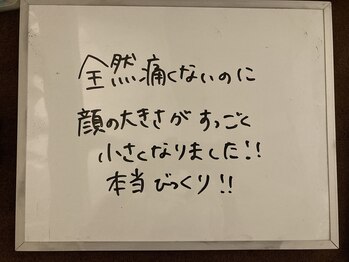 全然痛くないのに
顔の大きさがすっごく
小さくなりました!!
本当びっくり!!